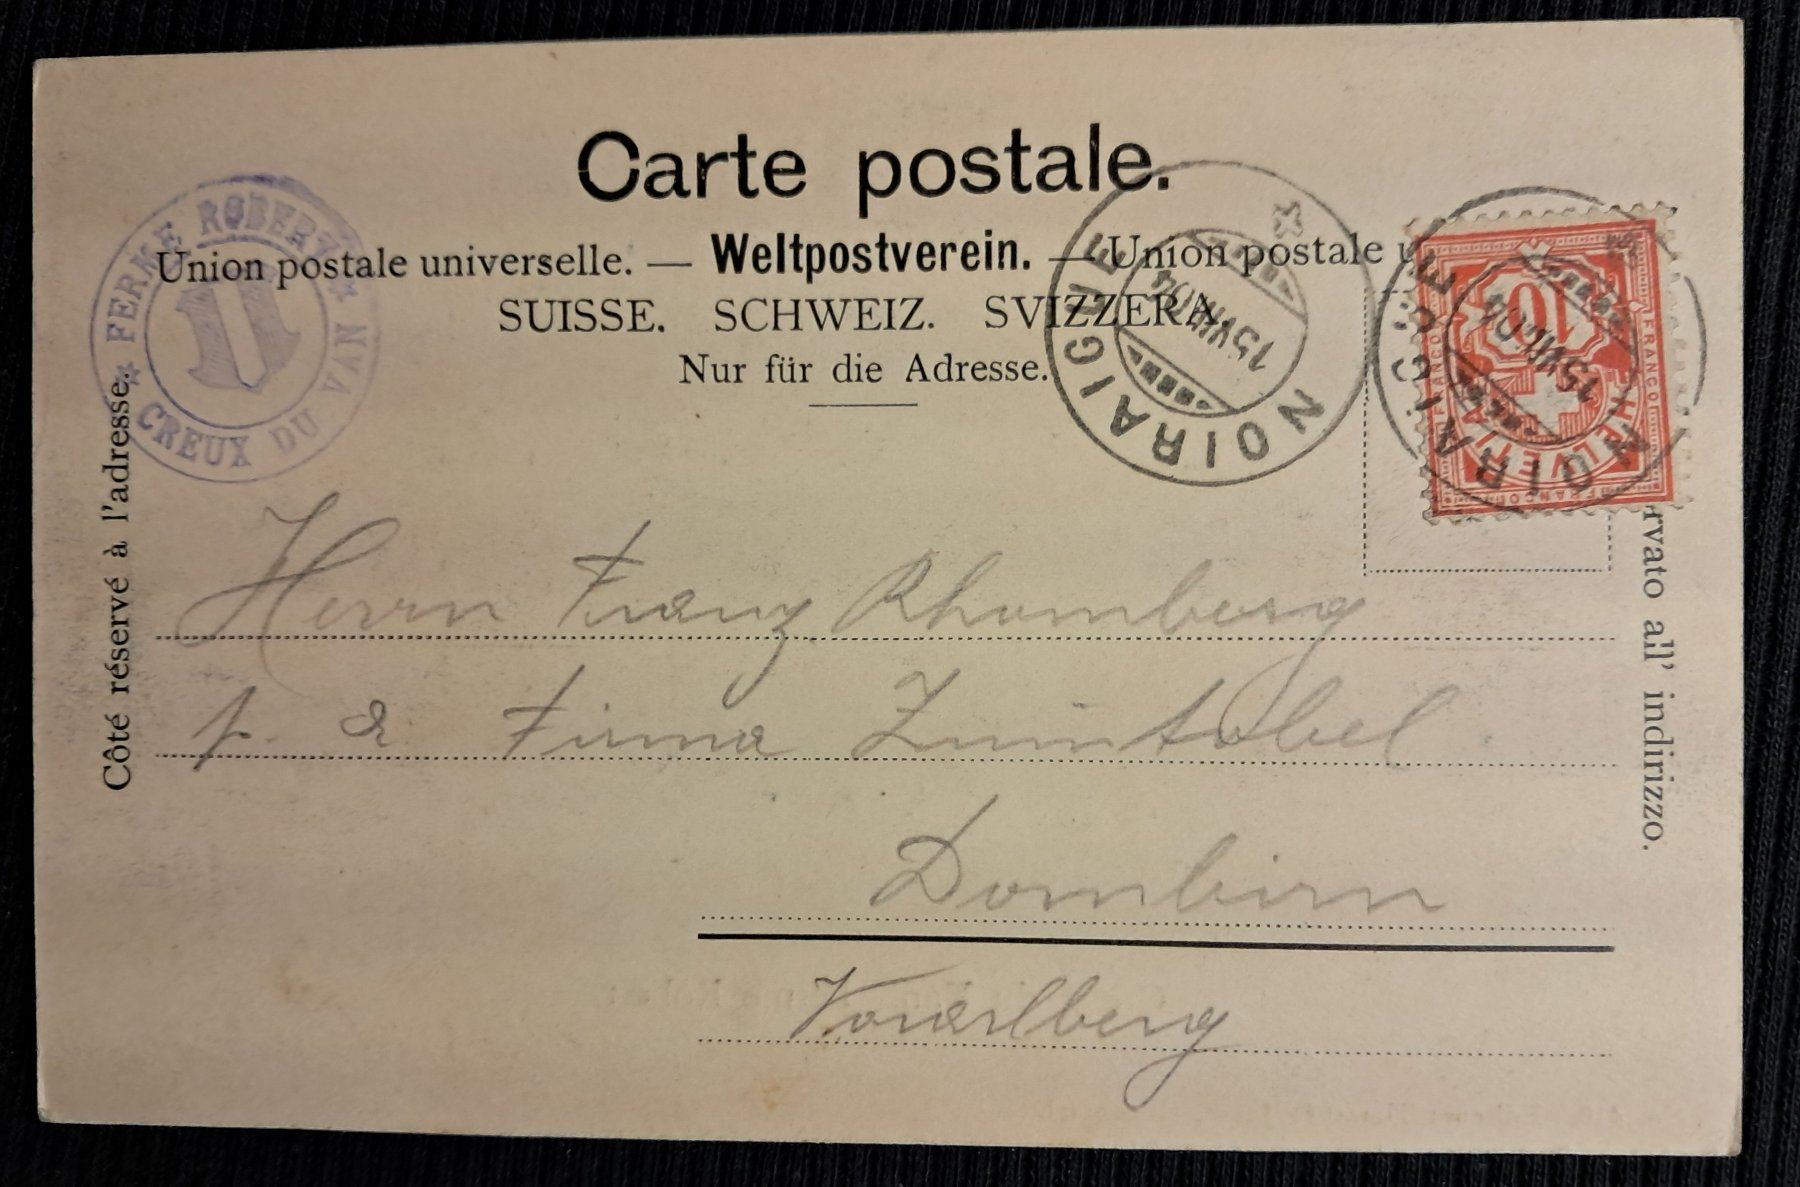 Carte postale.
Union postale universelle. — Weltpostverein. — Union postale u
SUISSE. SCHWEIZ. SVIZZERA.
Nur für die Adresse.
* FERME ROBERT * CREUX DU VAN
NOIRAIGUE *
15 VIII 04
NOIRAIGUE *
15 VIII 04
FRANCO
10
HELVETIA
FRANCO
FRANCO
Côté réservé à l'adresse.
rvato all' indirizzo.
Herrn Franz Rhomberg
p. a Firma Zumtobel
Dornbirn
Vorarlberg